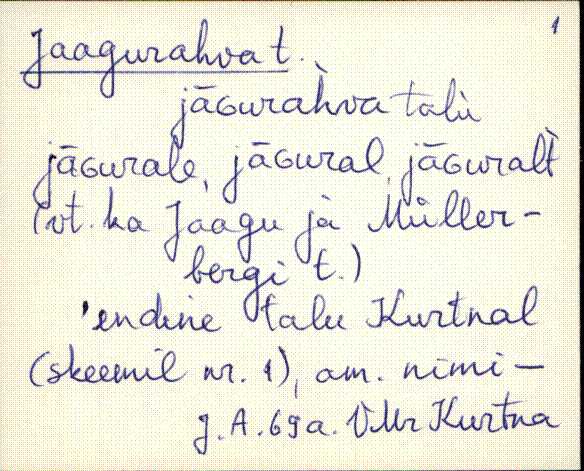 1
Jaagurahva t.
jāɢuràhva talù
jāɢurale, jāɢural, jāɢuralt
(vt. ka Jaagu ja Müller-
bergi t.)
'endine talu Kurtnal
(skeemil nr. 1), am. nimi –
J.A. 69 a. VMr Kurtna